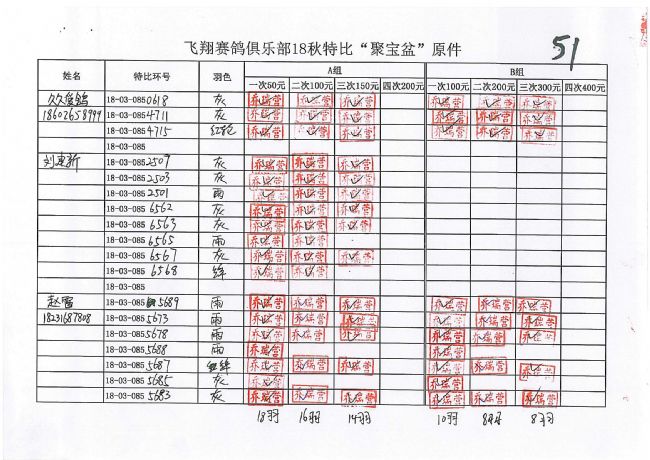 飞翔赛鸽俱乐部18秋特比“聚宝盆”原件
51
姓名 特比环号 羽色 A组 B组
一次50元 二次100元 三次150元 四次200元 一次100元 二次200元 三次300元 四次400元
18-03-0850618 灰 乔瑞营 乔瑞营 乔瑞营 乔瑞营 乔瑞营 乔瑞营
18602658999 18-03-0854711 灰 乔瑞营 乔瑞营 乔瑞营 乔瑞营 乔瑞营 乔瑞营
18-03-0854715 乔瑞营 乔瑞营 乔瑞营 乔瑞营 乔瑞营 乔瑞营
18-03-085
18-03-0852507 灰 乔瑞营 乔瑞营 乔瑞营
18-03-0852503 灰 乔瑞营 乔瑞营 乔瑞营
18-03-0852501 雨 乔瑞营 乔瑞营 乔瑞营
18-03-0856562 灰 乔瑞营 乔瑞营 乔瑞营
18-03-0856563 灰 乔瑞营 乔瑞营 乔瑞营
18-03-0856565 雨 乔瑞营 乔瑞营
18-03-0856567 灰 乔瑞营 乔瑞营 乔瑞营
18-03-0856568 绛 乔瑞营 乔瑞营
18-03-085
赵雷 18-03-0855689 雨 乔瑞营 乔瑞营 乔瑞营 乔瑞营 乔瑞营 乔瑞营
18231687808 18-03-0855673 雨 乔瑞营 乔瑞营 乔瑞营 乔瑞营 乔瑞营 乔瑞营
18-03-0855678 雨 乔瑞营 乔瑞营 乔瑞营 乔瑞营 乔瑞营 乔瑞营
18-03-0855688 雨 乔瑞营 乔瑞营
18-03-0855687 红绛 乔瑞营 乔瑞营 乔瑞营 乔瑞营 乔瑞营 乔瑞营
18-03-0855685 灰 乔瑞营 乔瑞营
18-03-0855683 灰 乔瑞营 乔瑞营 乔瑞营 乔瑞营 乔瑞营 乔瑞营
18羽 16羽 14羽 10羽 8羽 8羽